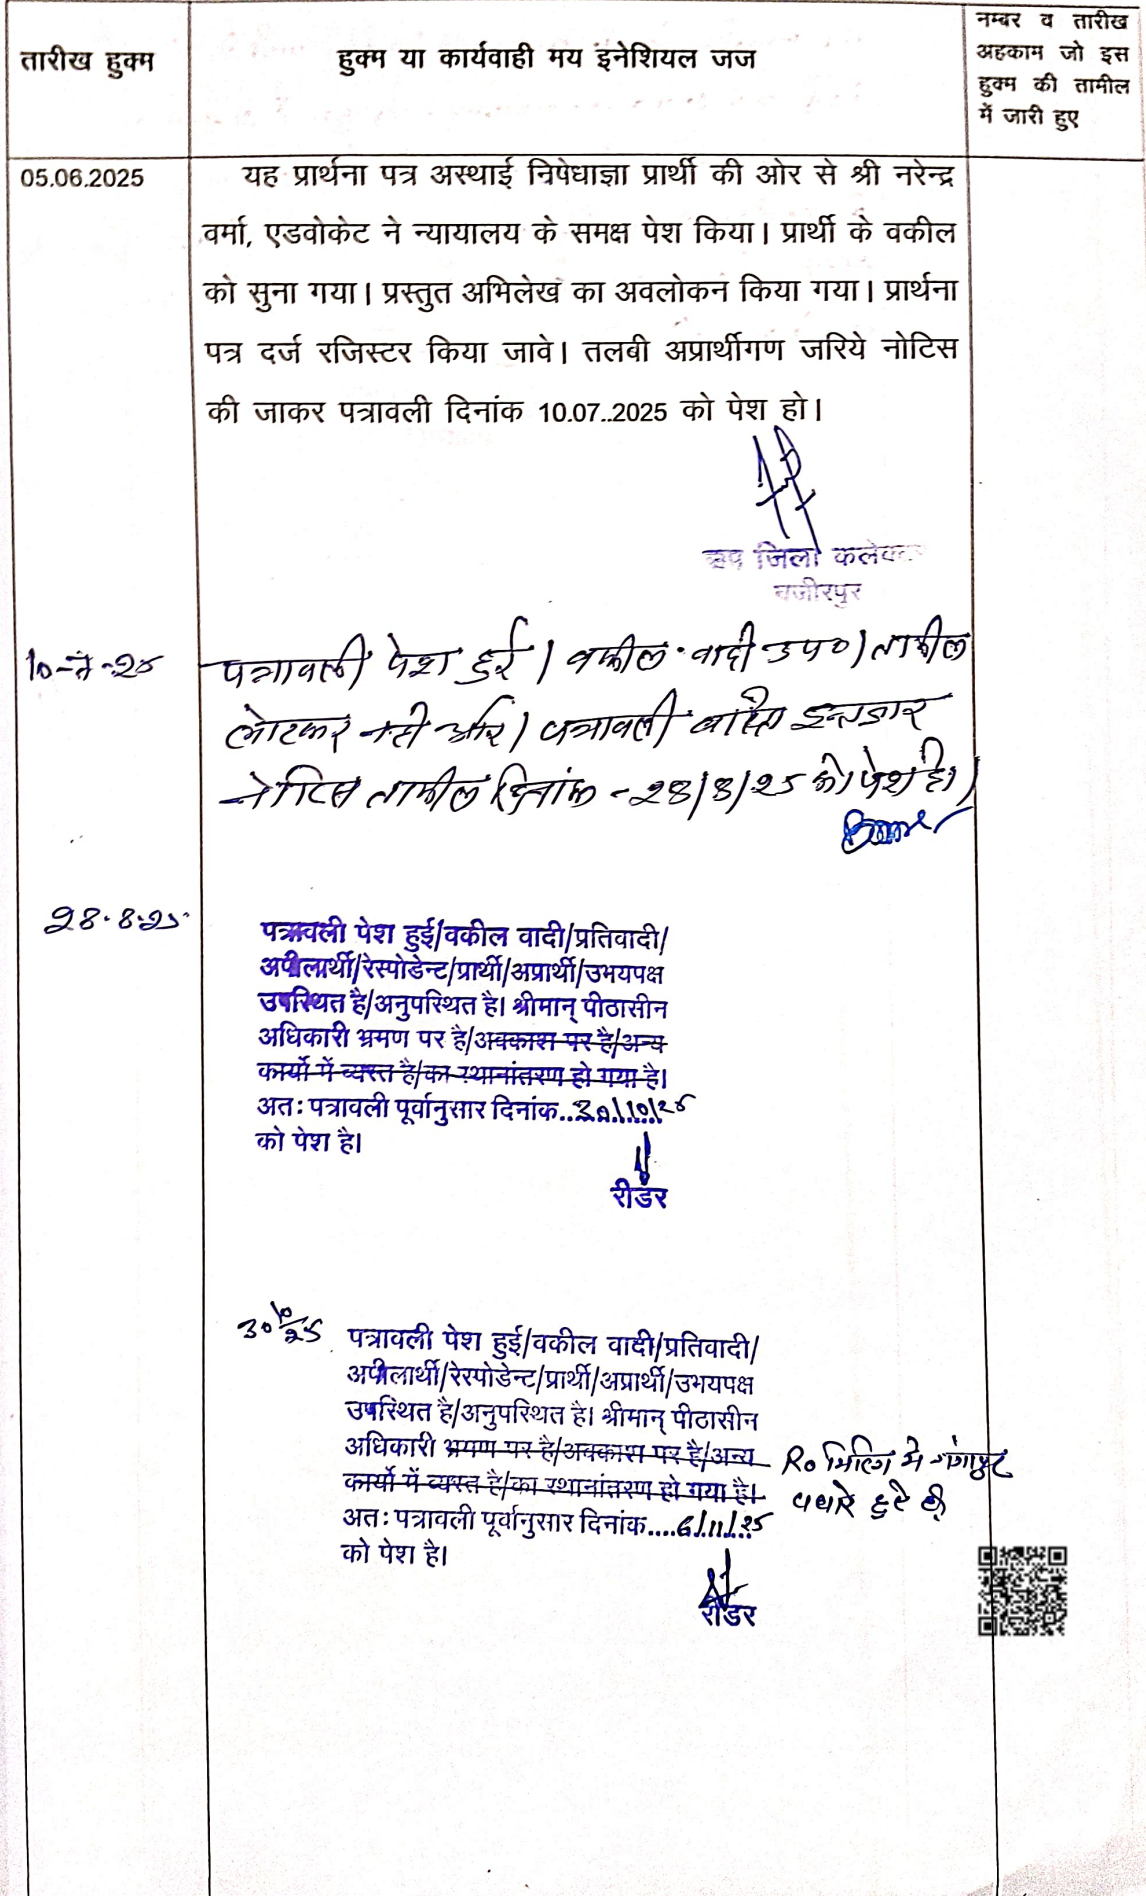 तारीख हुक्म
हुक्म या कार्यवाही मय इनेशियल जज
नम्बर व तारीख
अहकाम जो इस
हुक्म की तामील
में जारी हुए
05.06.2025
यह प्रार्थना पत्र अस्थाई निषेधाज्ञा प्रार्थी की ओर से श्री नरेन्द्र
वर्मा, एडवोकेट ने न्यायालय के समक्ष पेश किया। प्रार्थी के वकील
को सुना गया। प्रस्तुत अभिलेख का अवलोकन किया गया। प्रार्थना
पत्र दर्ज रजिस्टर किया जावे। तलबी अप्रार्थीगण जरिये नोटिस
की जाकर पत्रावली दिनांक 10.07..2025 को पेश हो।
उप जिला कलेक्टर
वजीरपुर
10-7-25
पत्रावली पेश हुई। वकील वादी उप०। तामील
लोटकर नही आई। पत्रावली वास्ते इन्तजार
नोटिस तामील दिनांक - 28/8/25 को पेश हो।
28.8.25
पत्रावली पेश हुई/वकील वादी/प्रतिवादी/
अपीलार्थी/रेस्पोडेन्ट/प्रार्थी/अप्रार्थी/उभयपक्ष
उपस्थित है/अनुपस्थित है। श्रीमान् पीठासीन
अधिकारी भ्रमण पर है/अवकाश पर है/अन्य
कार्यो में व्यस्त है/का स्थानांतरण हो गया है।
अतः पत्रावली पूर्वानुसार दिनांक..30/10/25
को पेश है।
रीडर
30/10/25
पत्रावली पेश हुई/वकील वादी/प्रतिवादी/
अपीलार्थी/रेस्पोडेन्ट/प्रार्थी/अप्रार्थी/उभयपक्ष
उपस्थित है/अनुपस्थित है। श्रीमान् पीठासीन
अधिकारी भ्रमण पर है/अवकाश पर है/अन्य
कार्यो में व्यस्त है/का स्थानांतरण हो गया है।
Ro मिटिंग मे गंगापुर
पधारे हुये है
अतः पत्रावली पूर्वानुसार दिनांक....6/11/25
को पेश है।
रीडर